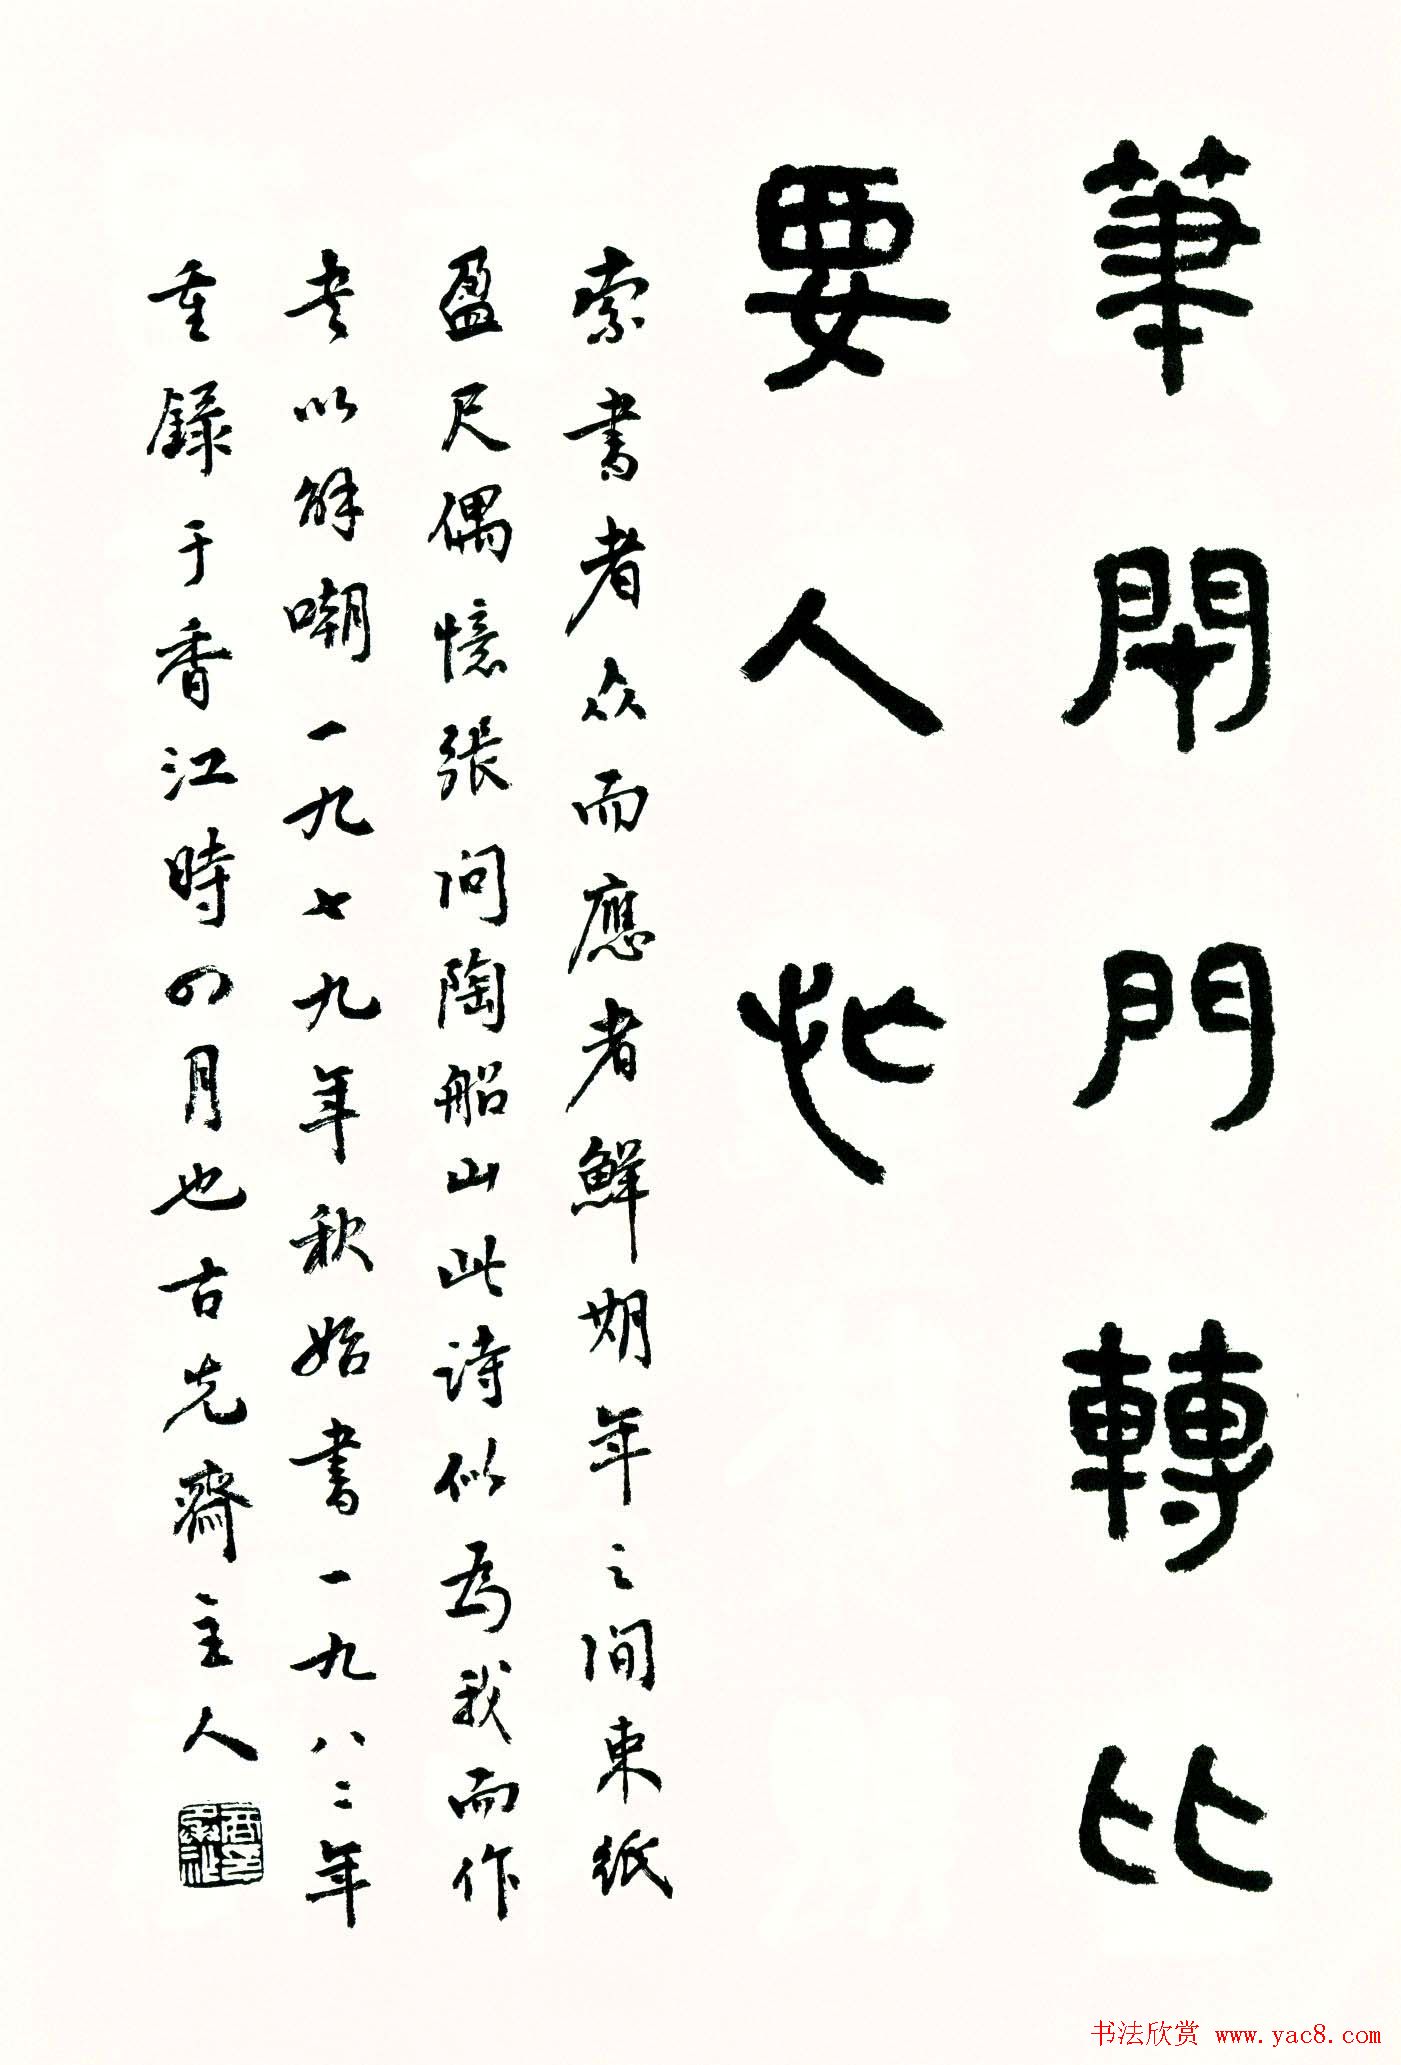 筆閈門轉比
要人忙
索書者众而應者鮮朞年之间束紙
盈尺偶憶張问陶船山此诗似为我而作
书以解嘲一九七九年秋始書一九八二年
重録于香江時四月也古先齋主人
书法欣赏 www.yac8.com